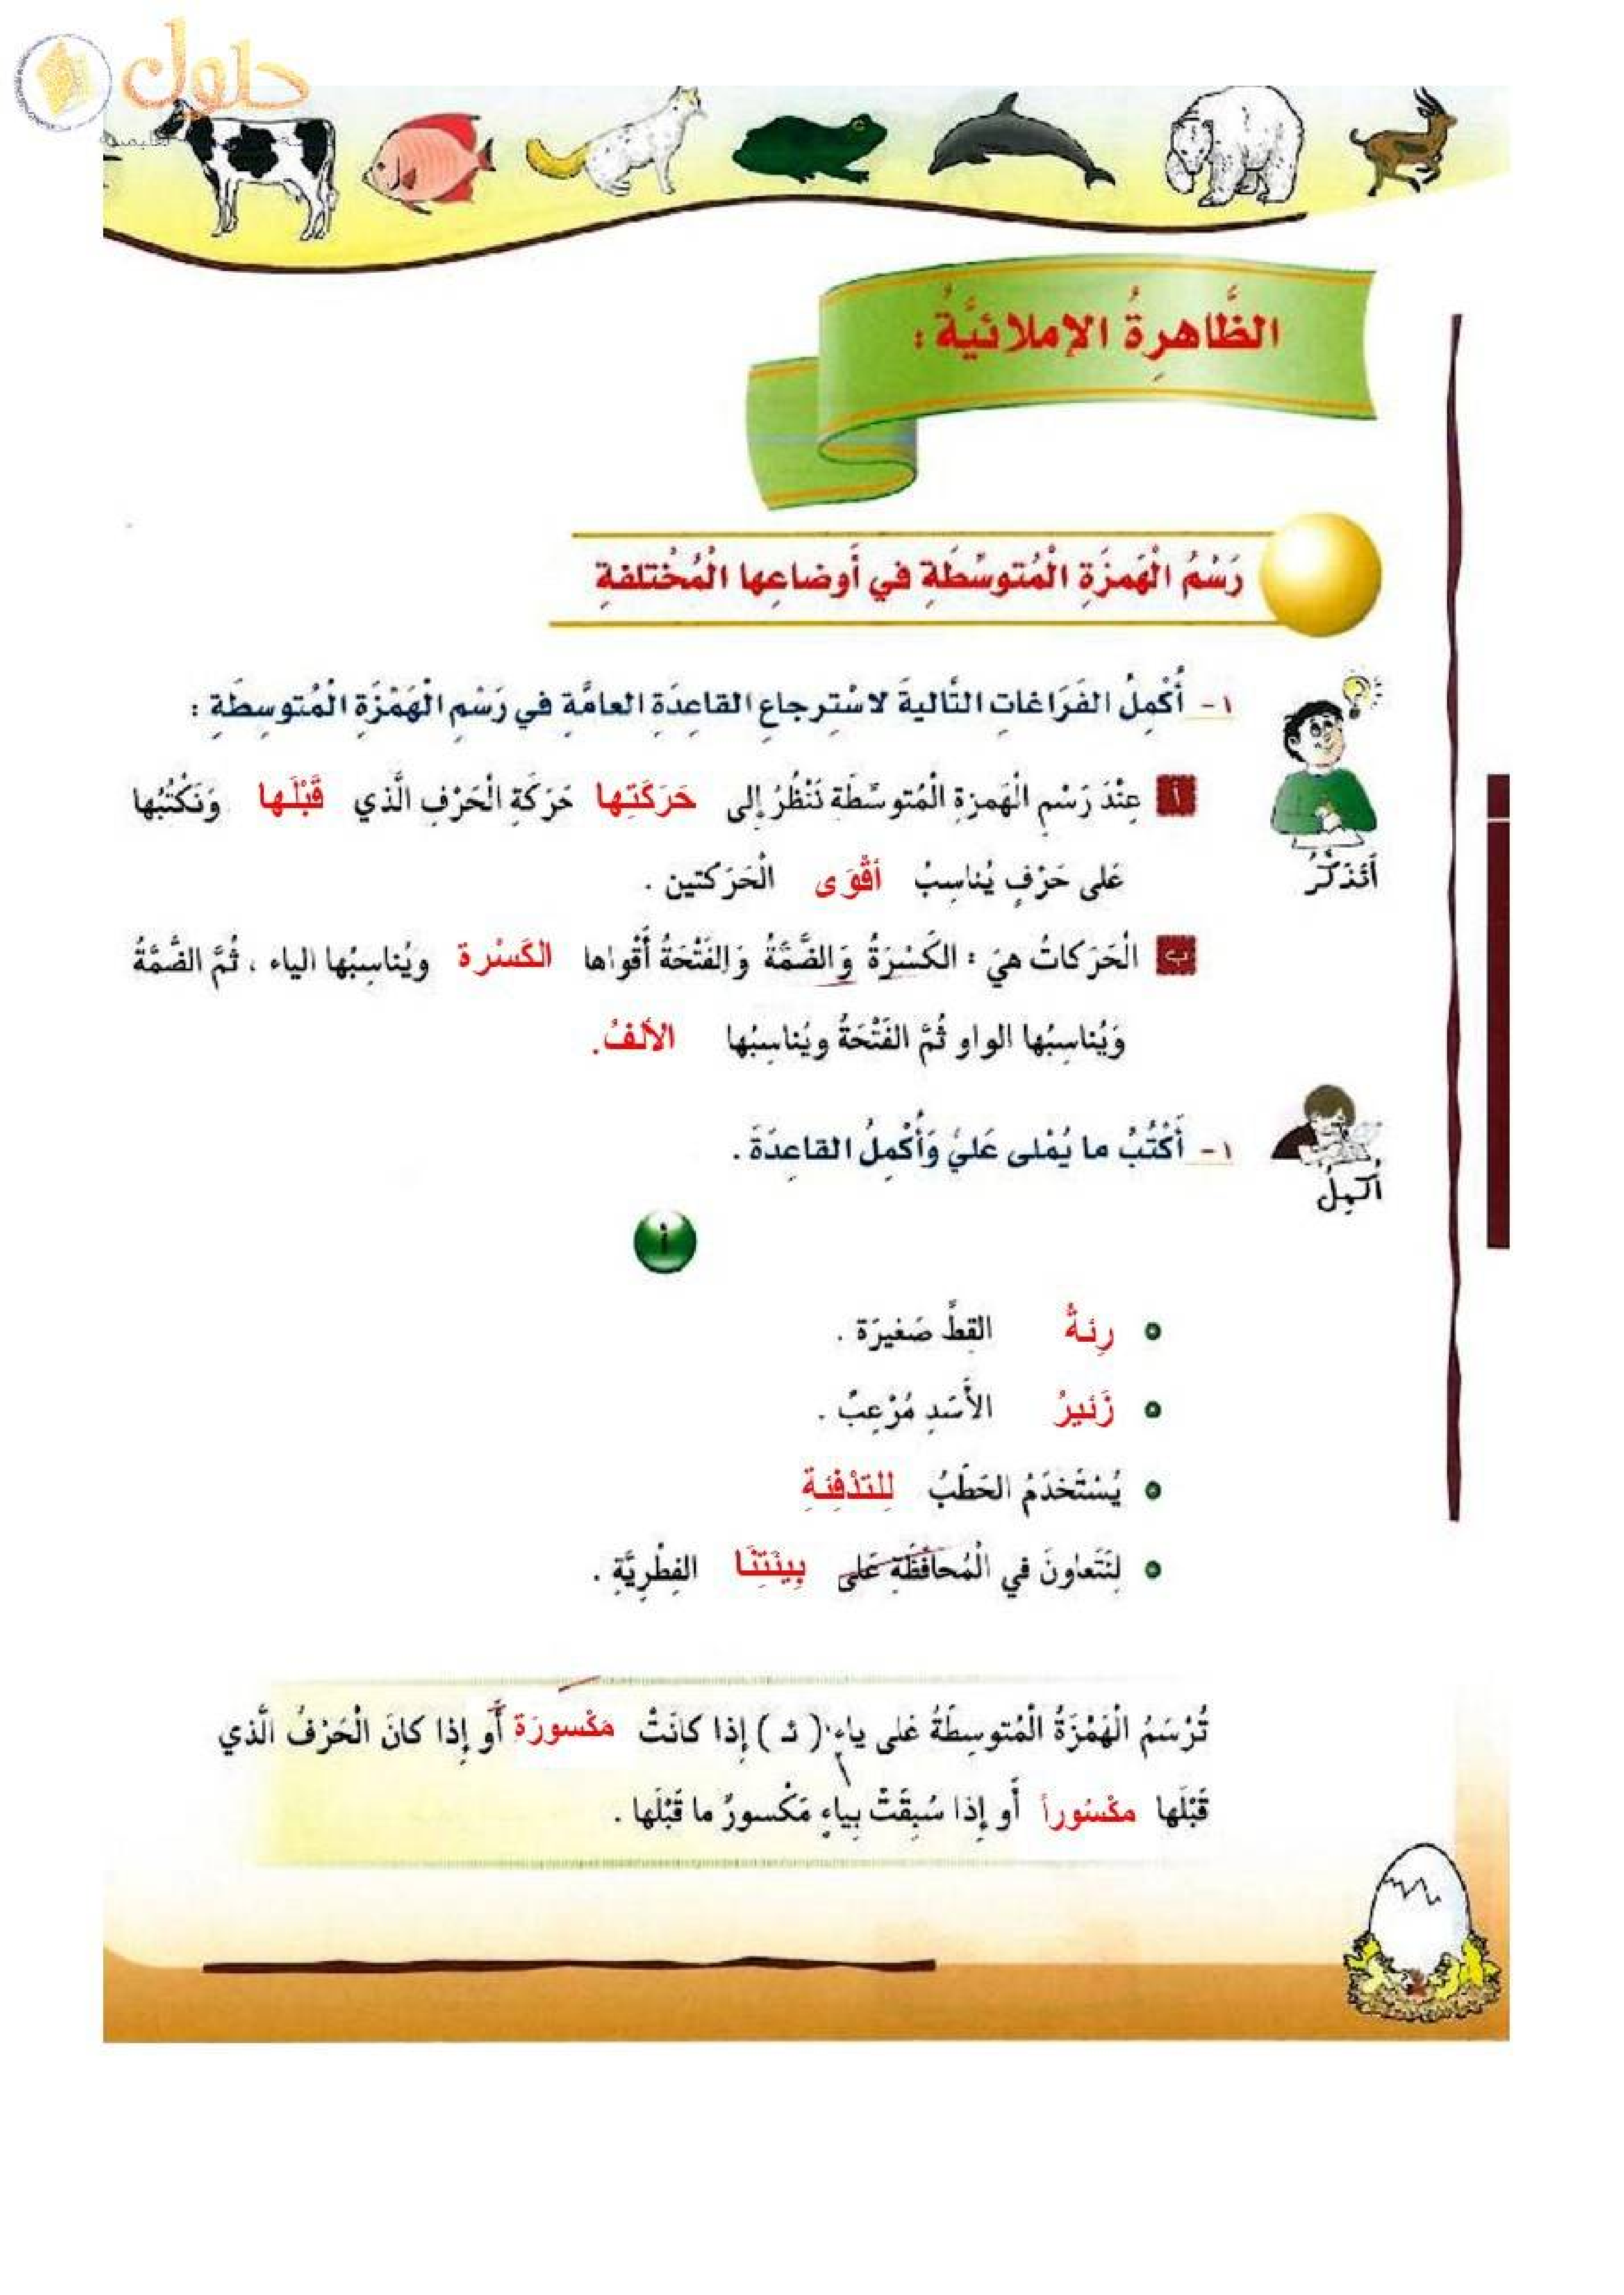 حلول
الظَّاهِرةُ الإملائيَّةُ :
رَسْمُ الْهَمزَةِ الْمُتوسِّطَةِ في أَوضاعِها الْمُخْتلفةِ
١- أُكْمِلُ الفَرَاغاتِ التَّاليةَ لاسْتِرجاعِ القاعِدَةِ العامَّةِ في رَسْمِ الْهَمْزَةِ الْمُتَوسِطَةِ :
أ عِنْدَ رَسْمِ الْهَمزةِ الْمُتوسِّطَةِ نَنْظُرُ إلى حَرَكَتِها حَرَكَةِ الْحَرْفِ الَّذي قَبْلَها وَنَكْتُبُها
عَلى حَرْفٍ يُناسِبُ أقْوَى الْحَرَكتين .
أَتَذَكَّرُ
ب الْحَرَكاتُ هيَ : الكَسْرَةُ وَالضَّمَّةُ وَالفَتْحَةُ أَقْواها الكَسْرة ويُناسِبُها الياء ، ثُمَّ الضَّمَّةُ
وَيُناسِبُها الواو ثُمَّ الفَتْحَةُ ويُناسِبُها الألفُ.
١- أَكْتُبُ ما يُمْلى عَليَّ وَأُكْمِلُ القاعِدَةَ .
أُكْمِلُ
أ
رِئةُ القِطِّ صَغيرَة .
زَئيرُ الأَسَدِ مُرْعِبٌ .
يُسْتَخْدَمُ الحَطَبُ لِلتدْفِئةِ
لِنَتَعاونَ في الْمُحافَظَةِ عَلى بِيئَتِنَا الفِطْرِيَّةِ .
تُرْسَمُ الْهَمْزَةُ الْمُتوسِطَةُ عَلى ياءٍ ( ئـ ) إذا كانَتْ مَكْسورَة أَو إذا كانَ الْحَرْفُ الَّذي
قَبْلَها مكْسُوراً أَو إذا سُبِقَتْ بِياءٍ مَكْسورٌ ما قَبْلَها .